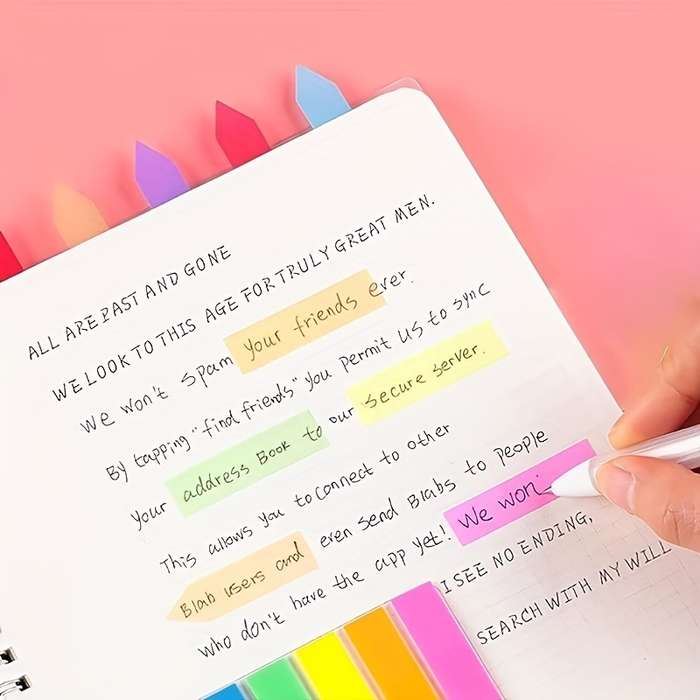 ALL ARE PAST AND GONE
WE LOOK TO THIS AGE FOR TRULY GREAT MEN.
We won't spam your friends ever.
By tapping "find friends" you permit us to sync
your address Book to our secure server.
This allows you to connect to other
Blab users and even send Blabs to people
who don't have the app yet! We won
I SEE NO ENDING,
SEARCH WITH MY WILL